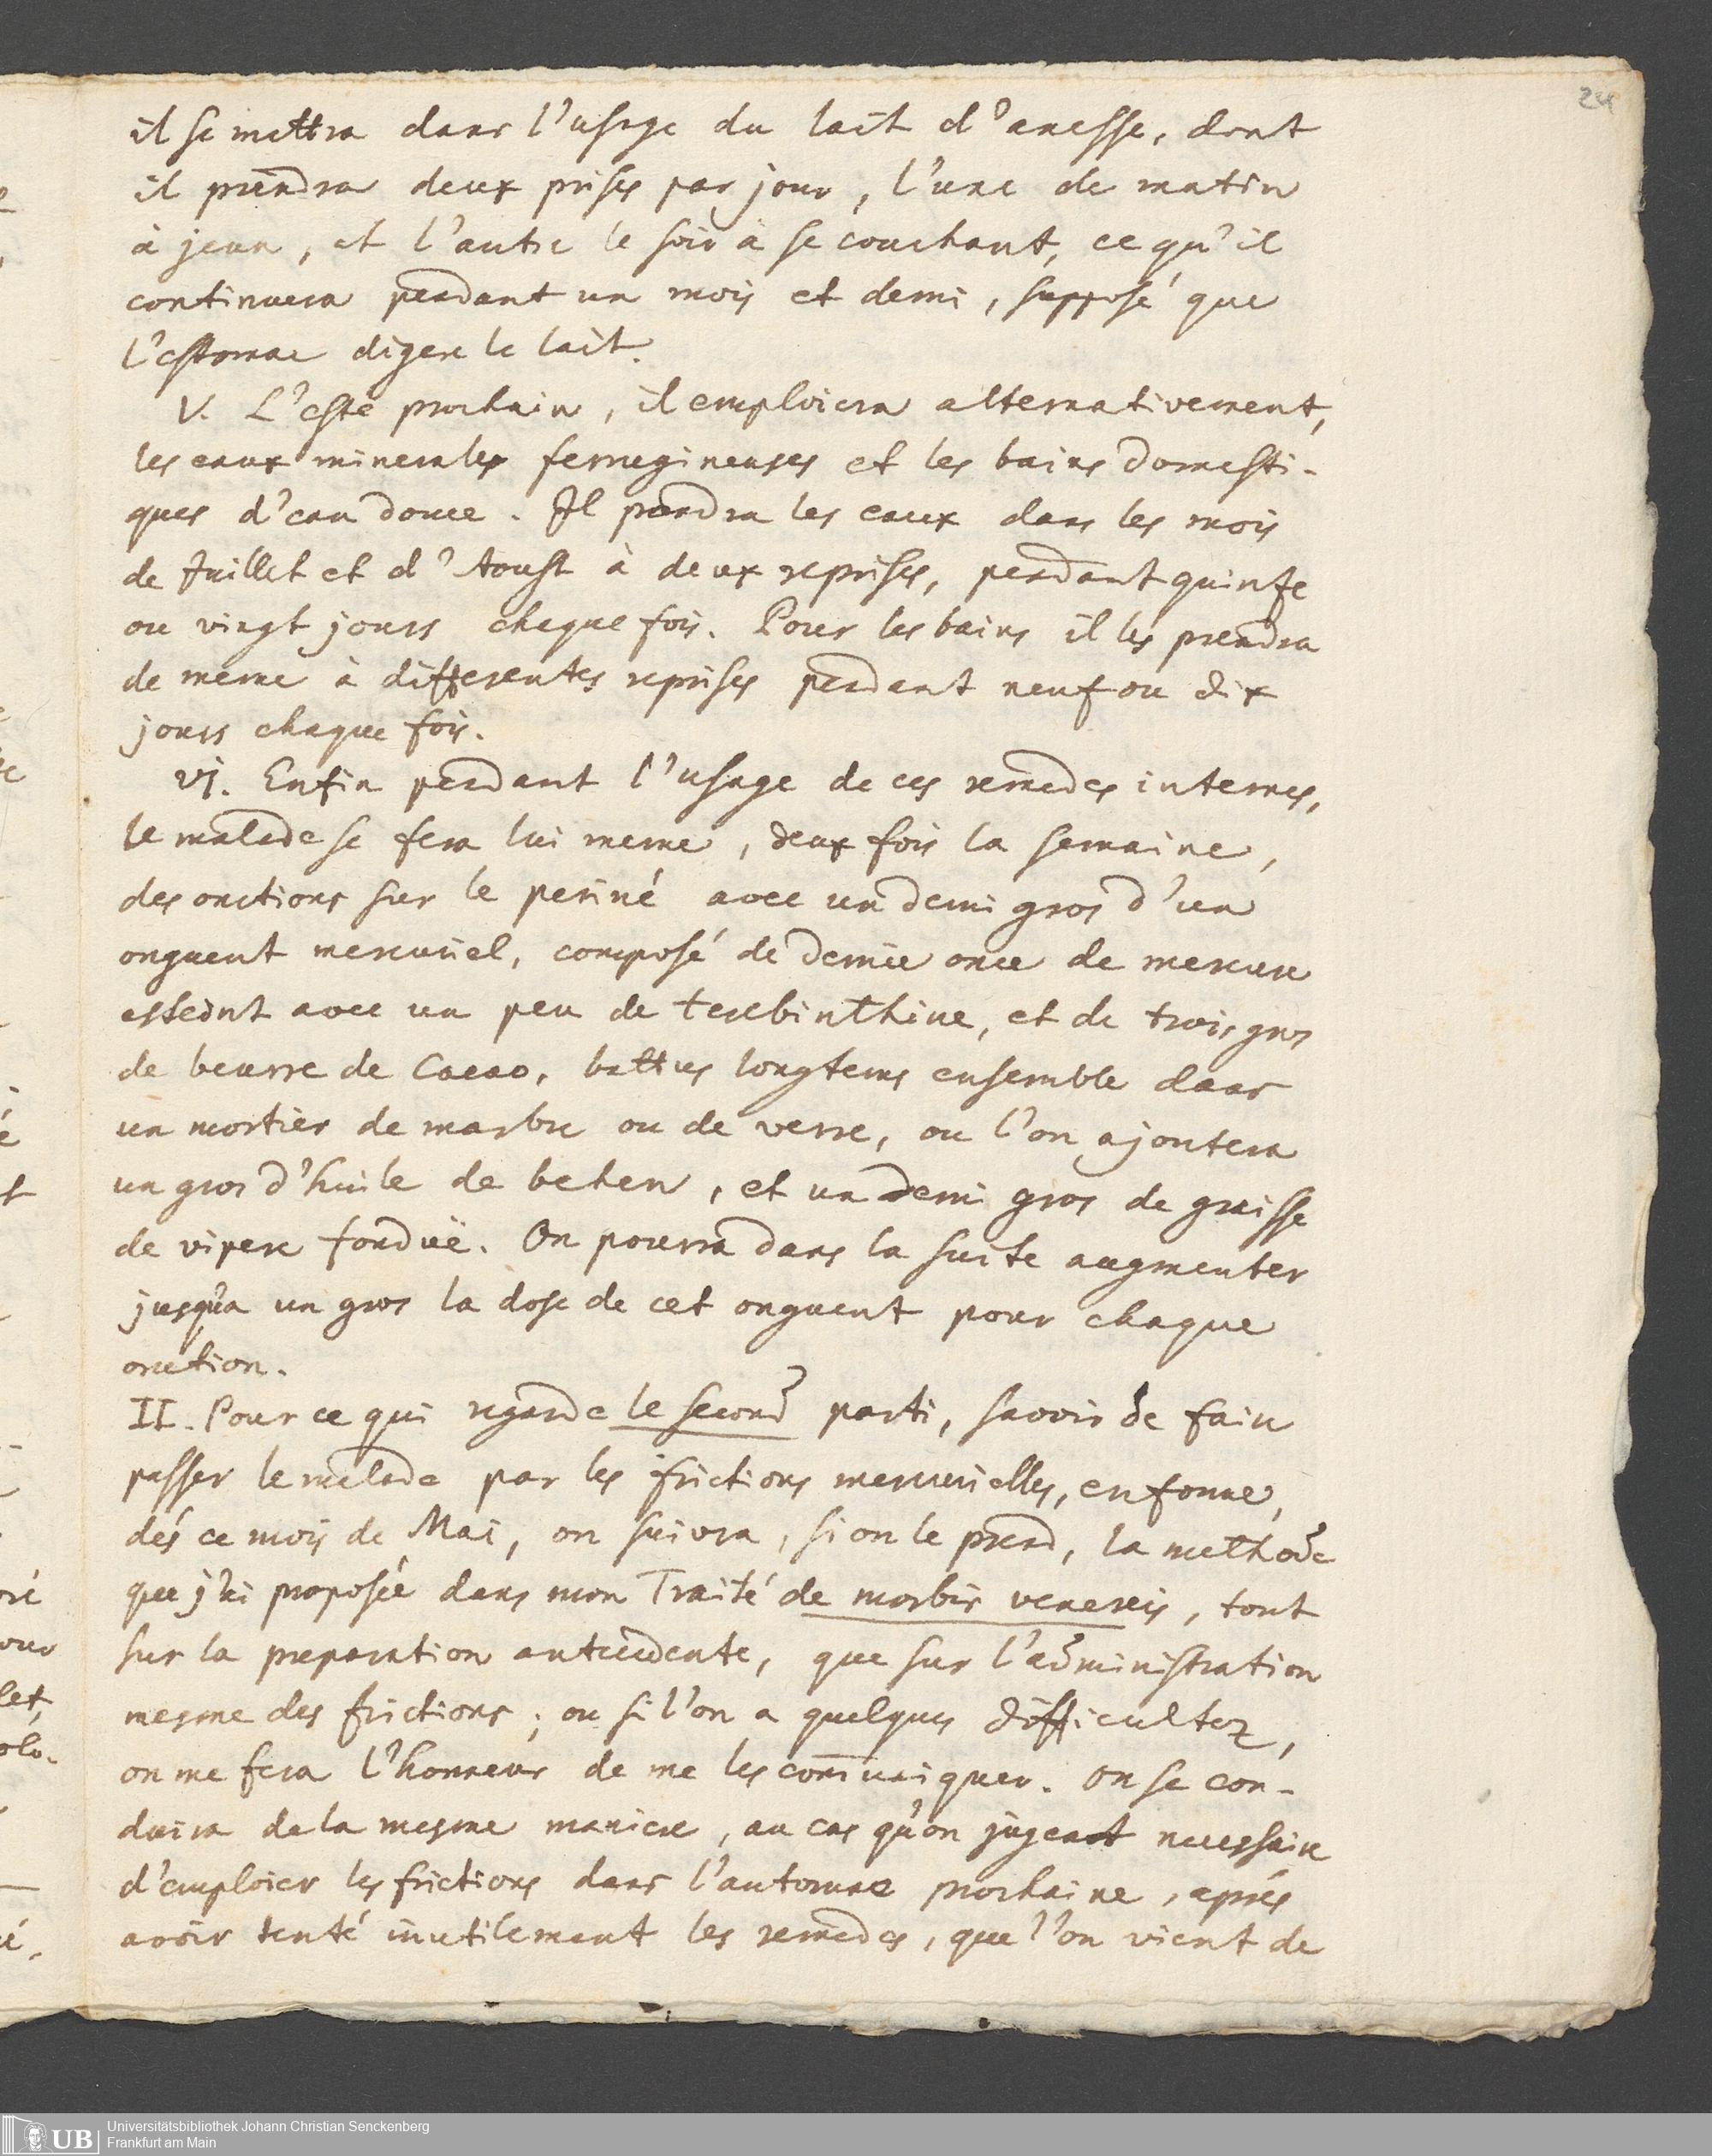 24
il se mettra dans l'usage du lait d'anesse, dont
il prendra deux prises par jour, l'une de matin
à jeun, et l'autre le soir à se couchant, ce qu'il
continuera pendant un mois et demi, supposé que
l'estomac digere le lait.
V. L'esté prochain, il emploiera alternativement,
les eaux minerales ferrugineuses et les bains domesti-
ques d'eau douce. Il prendra les eaux dans les mois
de Juillet et d'Aoust à deux reprises, pendant quinze
ou vingt jours chaque fois. Pour les bains il les prendra
de meme à differentes reprises pendant neuf ou dix
jours chaque fois.
VI. Enfin pendant l'usage de ces remedes internes,
le malade se fera lui meme, deux fois la semaine,
des onctions sur le periné avec un demi gros d'un
onguent mercuriel, composé de demie once de mercure
esteint avec un peu de terebinthine, et de trois gros
de beurre de Cacao, battus longtems ensemble dans
un mortier de marbre ou de verre, ou l'on ajoutera
un gros d'huile de behen, et un demi gros de graisse
de vipere fonduë. On pourra dans la suite augmenter
jusqu'a un gros la dose de cet onguent pour chaque
onction.
II. Pour ce qui regarde le second parti, savoir de faire
passer le malade par les frictions mercurielles, en forme,
dés ce mois de Mai, on suivra, si on le prend, la methode
que j'ai proposée dans mon Traité de morbis venereis, tant
sur la preparation antecedente, que sur l'administration
mesme des frictions; ou si l'on a quelques difficultez,
on me fera l'honneur de me les com̅uniquer. On se con-
duira de la mesme maniere, au cas qu'on jugeat necessaire
d'emploier les frictions dans l'automne prochaine, aprés
avoir tenté inutilement les remedes, que l'on vient de
UB Universitätsbibliothek Johann Christian Senckenberg
Frankfurt am Main